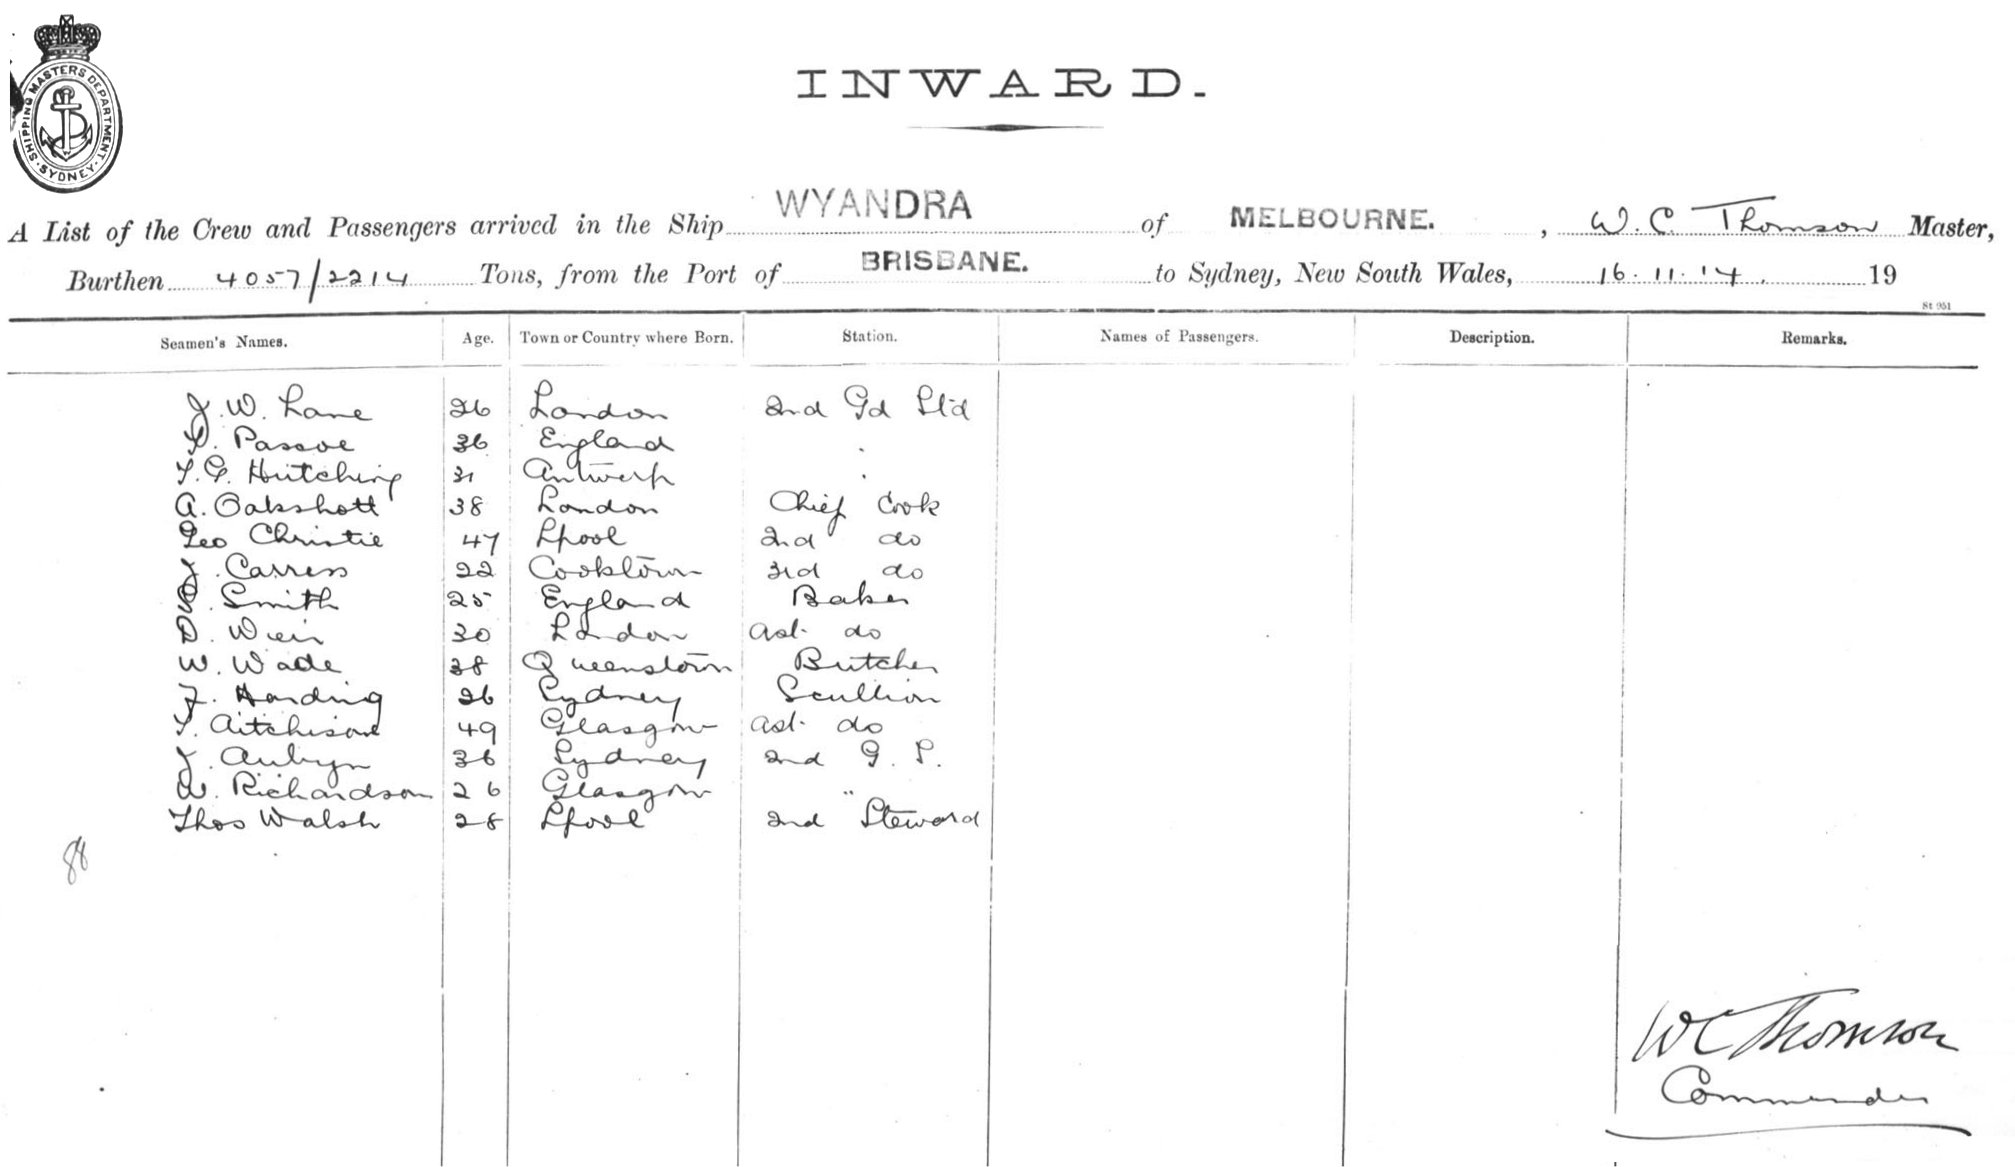 SHIPPING MASTERS DEPARTMENT. SYDNEY.
INWARD.
A List of the Crew and Passengers arrived in the Ship WYANDRA of MELBOURNE. , W. C. Thomson Master,
Burthen 4057/2214 Tons, from the Port of BRISBANE. to Sydney, New South Wales, 16.11.14. 19
St 951
Seamen's Names. Age. Town or Country where Born. Station. Names of Passengers. Description. Remarks.
J. W. Lane 26 London 2nd Gd Std
Pascoe 36 England "
Hutching 31 Antwerp "
A. Oakshott 38 London Chief Cook
Geo Christie 47 Lpool 2nd do
J. Carress 22 Cooktown 3rd do
Smith 25 England Baker
D. Weir 30 London ast. do
W. Wade 38 Queenstown Butcher
F. Harding 26 Sydney Scullion
T. Aitchison 49 Glasgow ast. do
J. Aubyn 36 Sydney 2nd G. S.
W. Richardson 26 Glasgow "
Thos Walsh 28 Lpool 2nd Steward
88
W C Thomson
Commander